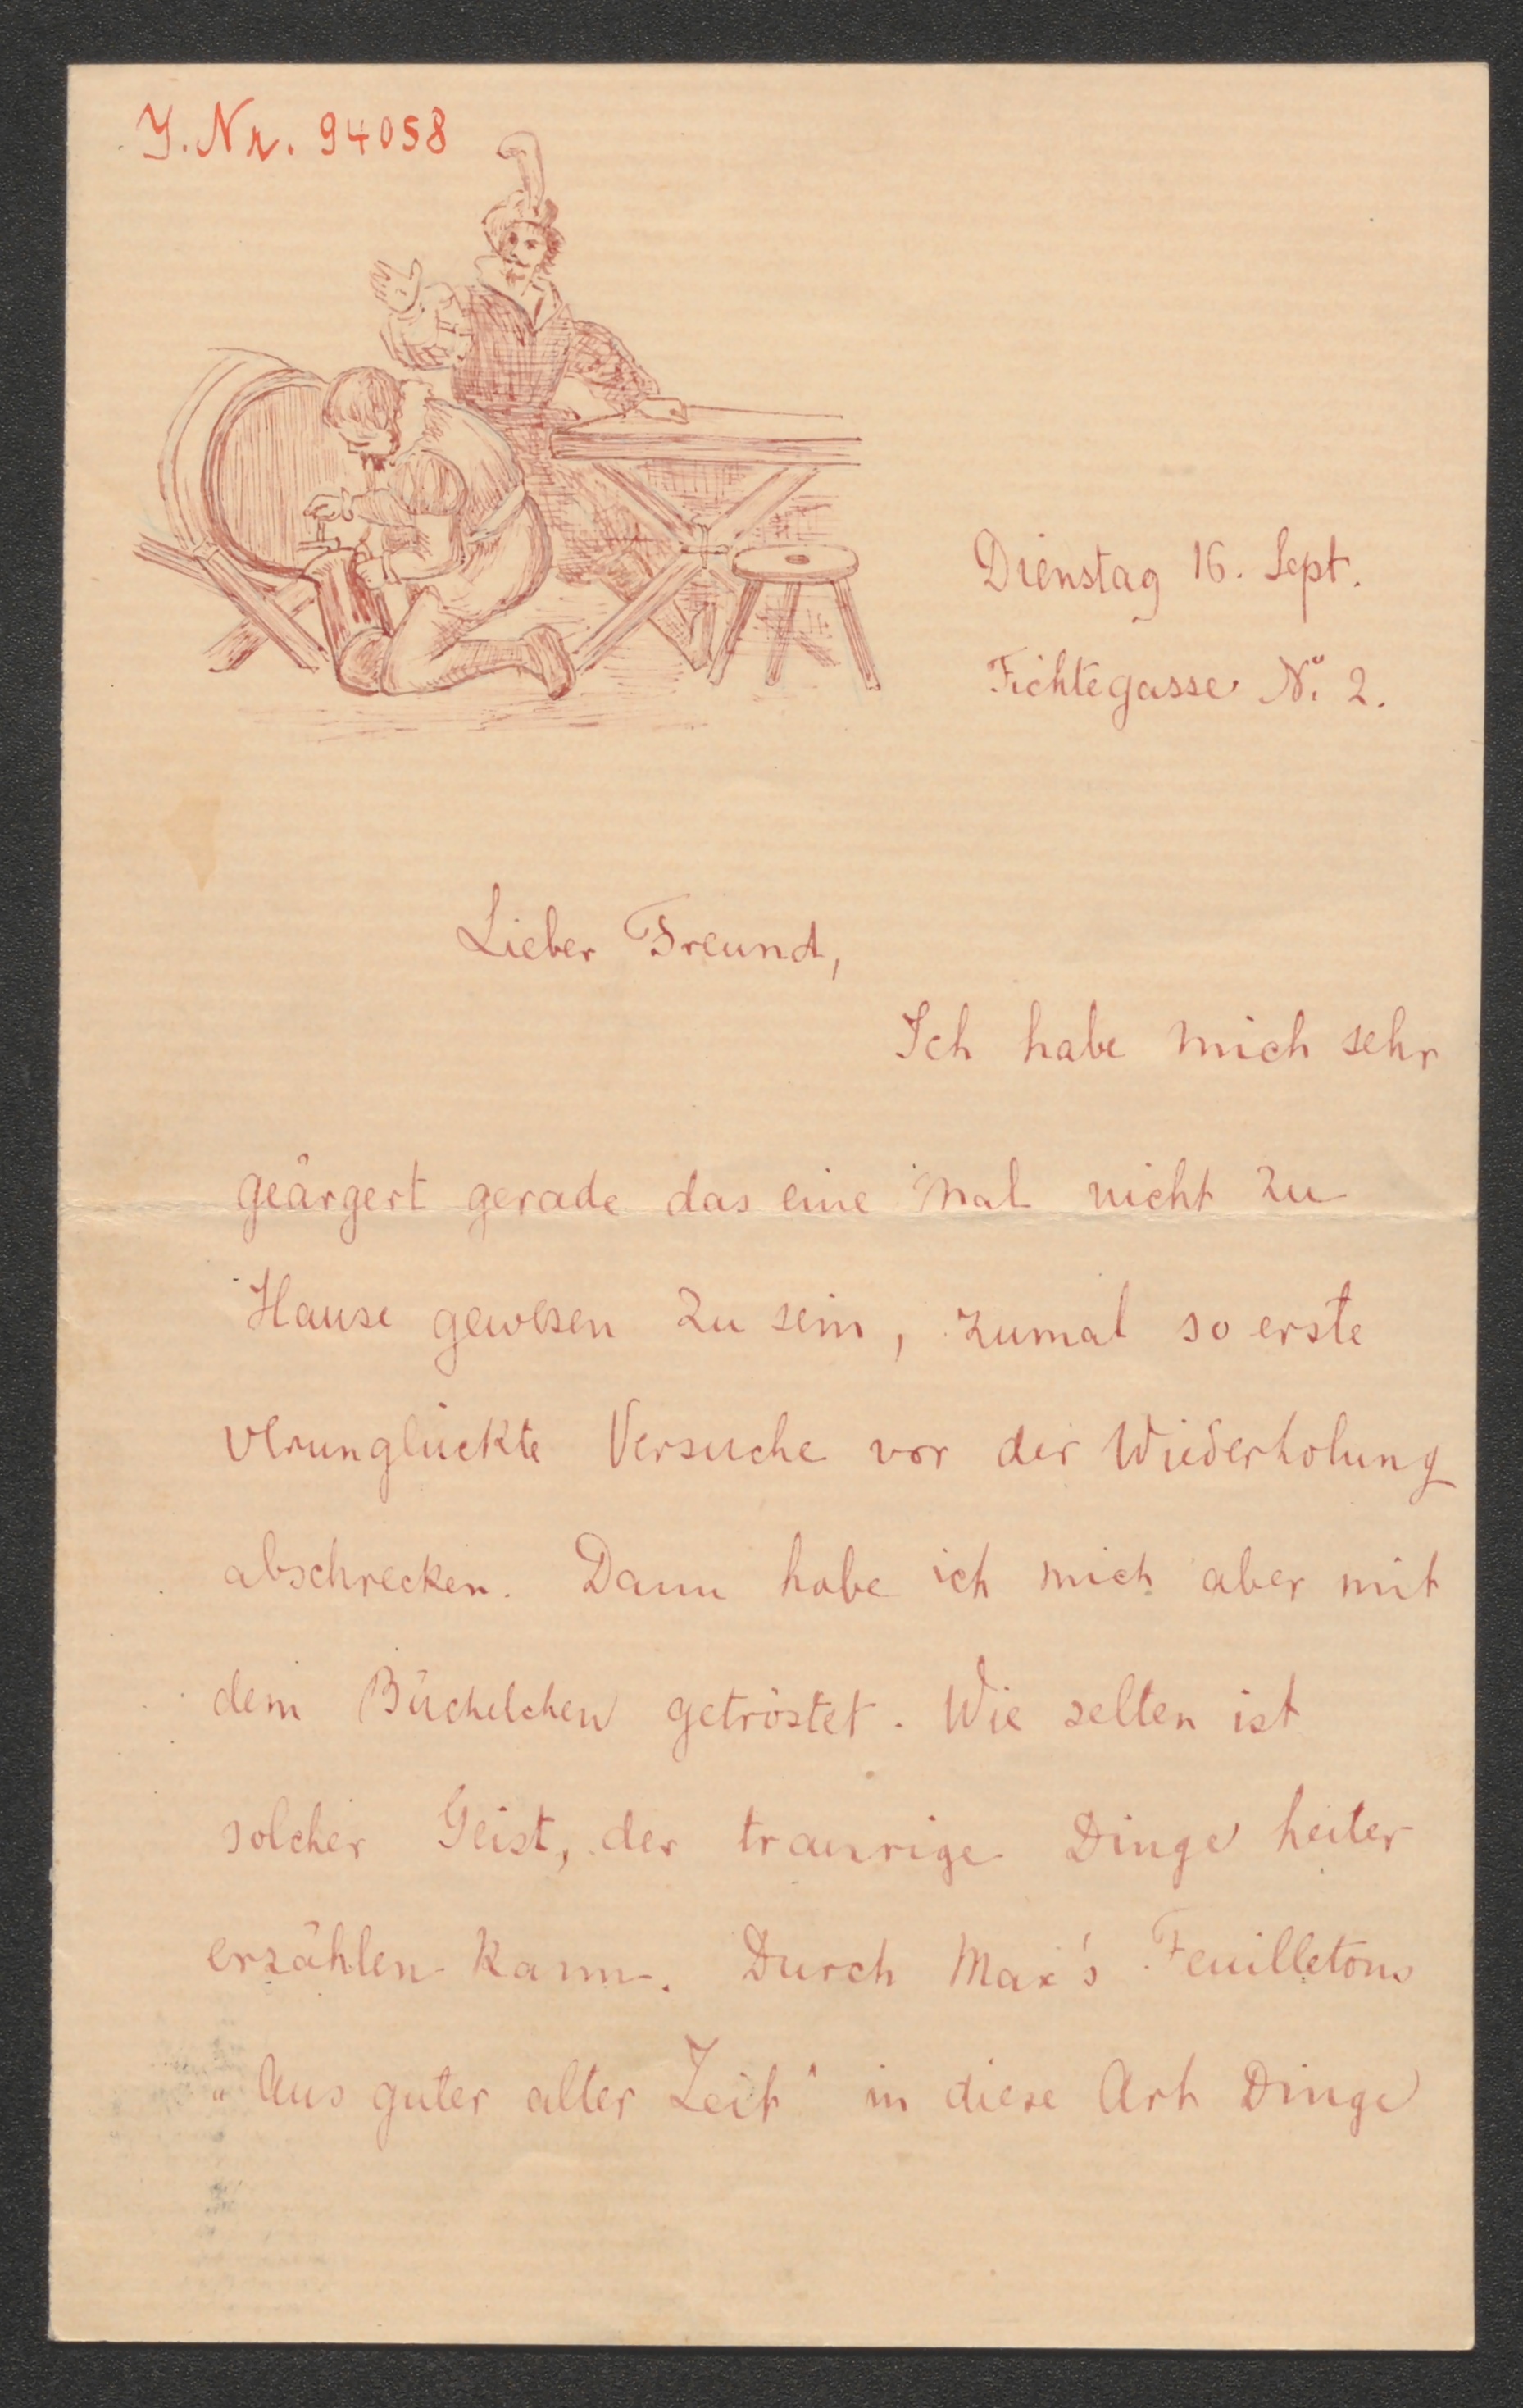 J.Nr. 94058
Dienstag 16. Sept.
Fichtegasse No 2.
Lieber Freund,
Ich habe mich sehr
geärgert gerade das eine Mal nicht zu
Hause gewesen zu sein, zumal so erste
verunglückte Versuche vor der Wiederholung
abschrecken. Dann habe ich mich aber mit
dem Büchelchen getröstet. Wie selten ist
solcher Geist, der traurige Dinge heiter
erzählen kann. Durch Max's Feuilletons
„Aus guter alter Zeit" in diese Art Dinge